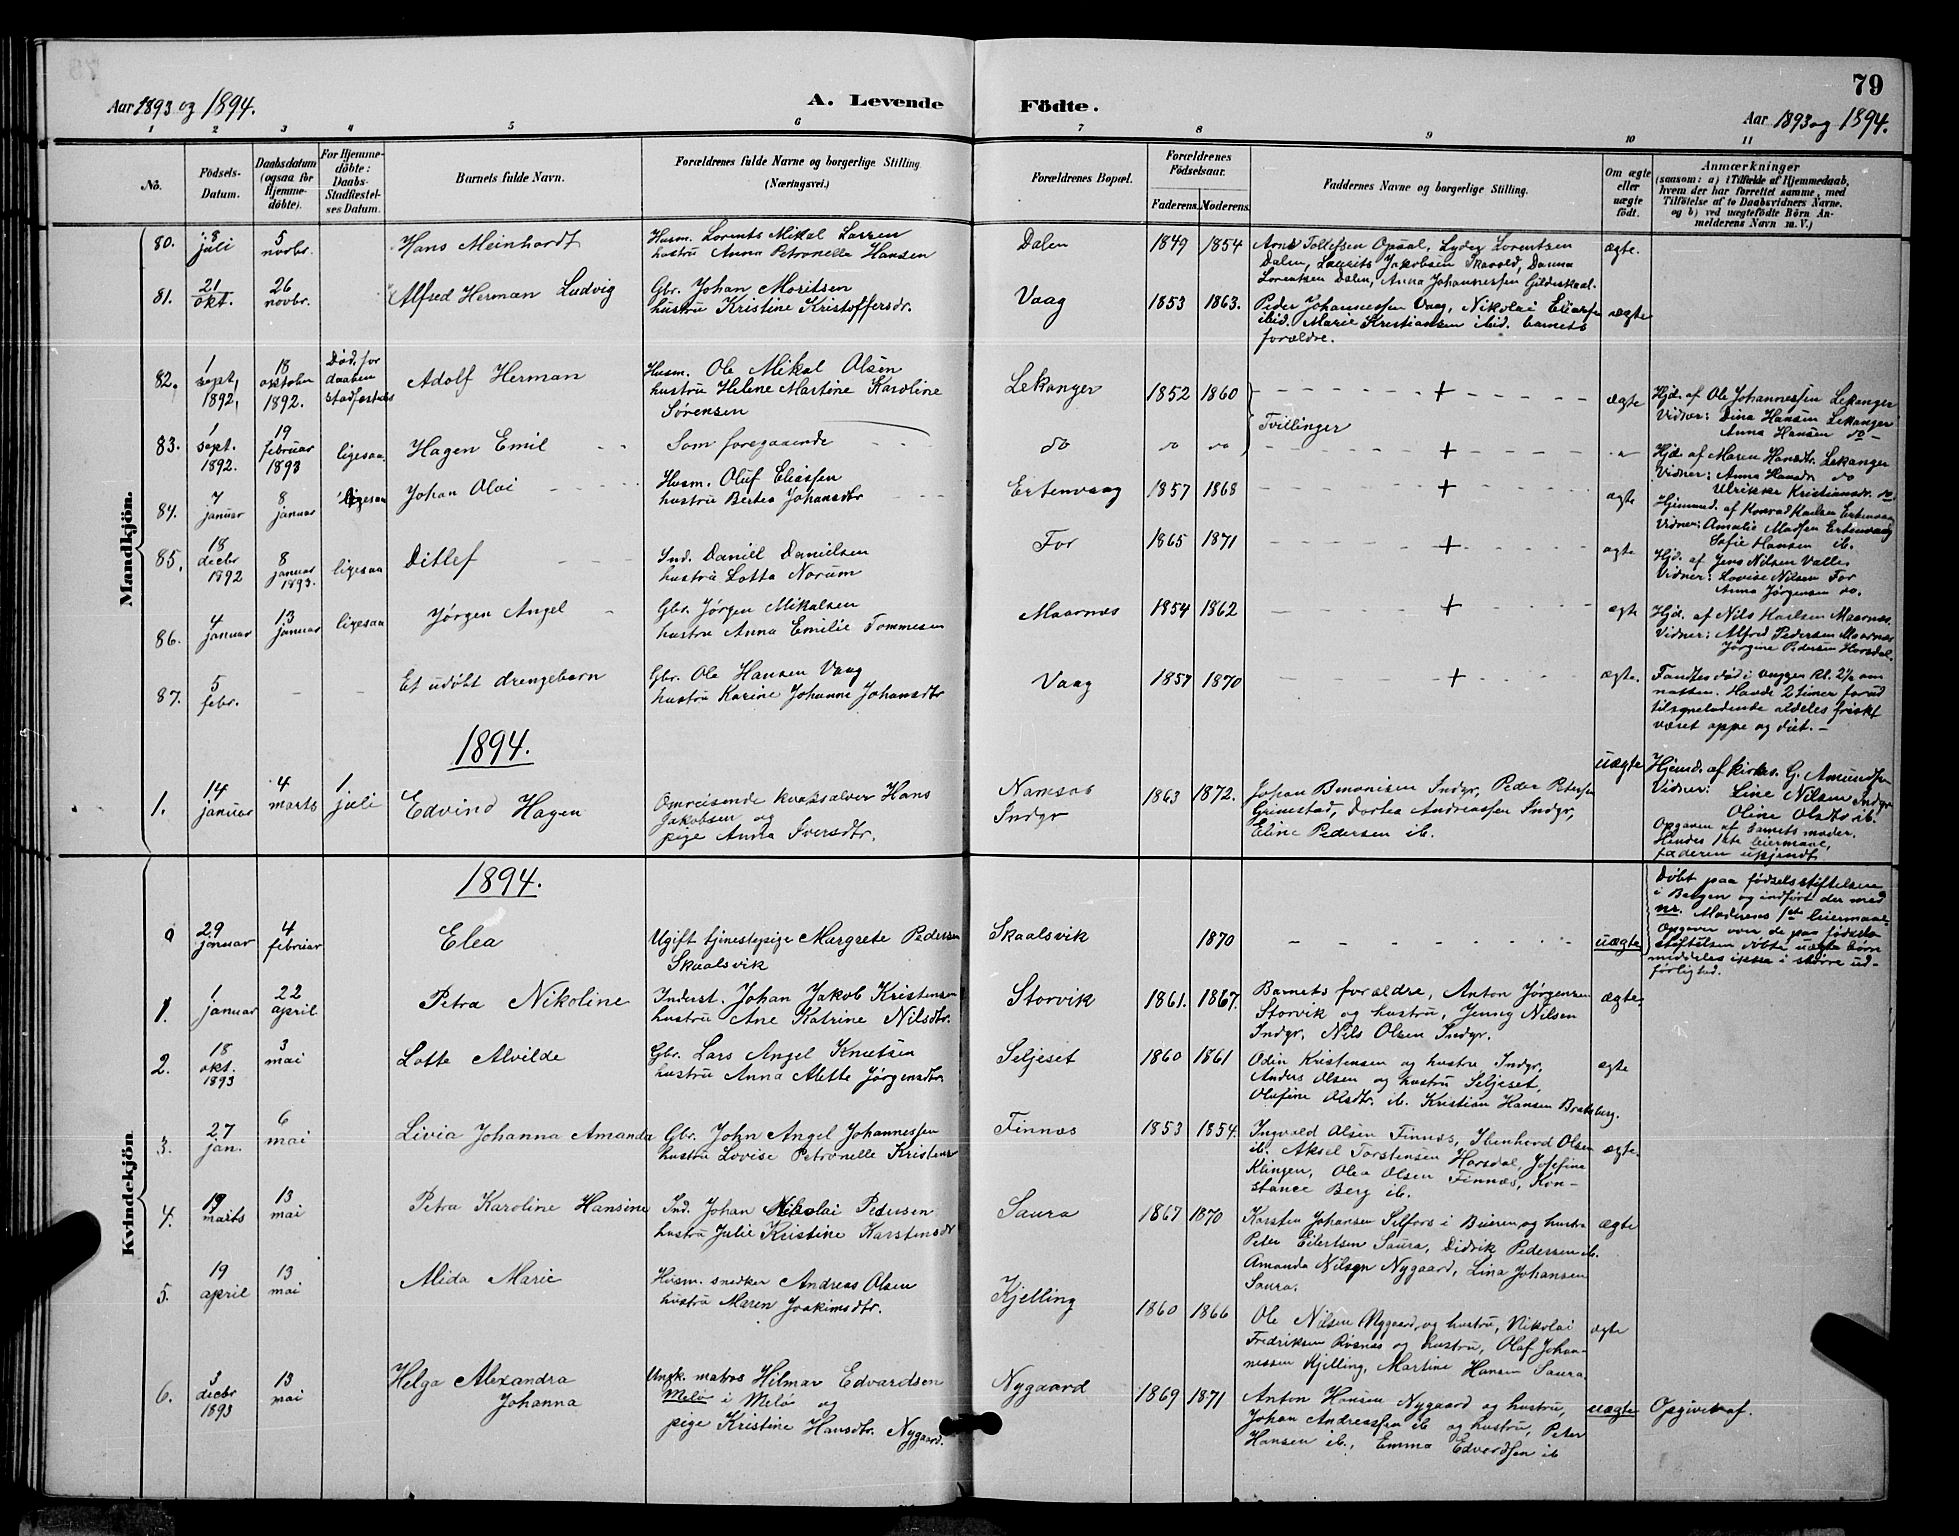 79
Aar 1893 og 1894.
A. Levende Födte.
Aar 1893 og 1894.
1 2 3 4 5 6 7 8 9 10 11
No.
Födsels-Datum.
Daabsdatum (ogsaa for Hjemme-döbte).
For Hjemme-döbte: Daabs-Stadfæstel-ses Datum.
Barnets fulde Navn.
Forældrenes fulde Navne og borgerlige Stilling. (Næringsvei.)
Forældrenes Bopæl.
Forældrenes Födselsaar.
Faderens. Moderens.
Faddernes Navne og borgerlige Stilling.
Om ægte eller uægte födt.
Anmærkninger
(saasom: a) i Tilfælde af Hjemmedaab, hvem der har forrettet samme, med Tilföielse af to Daabsvidners Navne, og b) ved uægtefödte Börn An-melderens Navn m. V.)
Mandkjön.
80. 8 juli 5 novbr. Hans Meinhardt
Husm. Lorents Mikal Larsen
hustru Anna Petronelle Hansen
Dalen 1849 1854
Arnt Tollefsen Opsal, Lyder Lorentsen
Dalen, Laurits Jakobsen Skavold, Danna
Lorentsen Dalen, Anna Johannessen Gildeskaal.
ægte.
81. 21 okt. 26 novbr. Alfred Herman Ludvig
Gbr. Johan Moritsen
hustru Kristine Kristoffersdr.
Vaag 1853 1863.
Peder Johannessen Vaag, Nikolai Eliassen
ibid. Marie Kristiansen ibid. barnets
forældre.
ægte
82. 1 sept, 1892, 18 oktober 1892. Død før daaben stadfæstedes
Adolf Herman
Husm. Ole Mikal Olsen
hustru Helene Martine Karoline
Sørensen
Lekanger 1852 1860 +
Tvillinger
ægte
Hjd. af Ole Johannessen Lekanger
Vidner: Dina Hansen Lekanger
Anna Hansen do
83. 1 sept. 1892. 19 februar 1893 ligesaa
Hagen Emil
Som foregaaende
do do do +
Hjd. af Maren Hansdtr. Lekanger
Vidner: Anna Hansdr. do
Ulrikke Kristiansdr. do
84. 7 januar 8 januar ligesaa
Johan Olai
Husm. Oluf Eliassen
hustru Berta Johansdtr
Ertenvaag 1857 1868 + ægte
Hjemmed. af Konrad Karlsen Ertenvaag
Vidner: Amalie Madsen Ertenvaag
Sofie Hansen ib.
85. 18 decbr 1892 8 januar 1893. ligesaa
Ditlef
Ind. Daniel Danielsen
hustru Lotta Norum
For 1865 1871 + ægte
Hjd. af Jens Nilsen Valle
Vidner: Lovise Nilsen For
Anna Jørgensen do.
86. 4 januar 13 januar ligesaa
Jørgen Angel
Gbr. Jørgen Mikalsen
hustru Anna Emilie Tommesen
Maarnæs 1854 1862 + ægte
Hjd. af Nils Karlsen Maarnæs.
Vidner: Alfred Pedersen Maarnæs
Jørgine Pedersen Horsdal.
87. 5 febr. – –
Et udøbt drengebarn
Gbr. Ole Hansen Vaag
hustru Karine Johanne Johansdtr
Vaag 1857 1870 + ægte.
Fandtes død i vuggen Kl. 2½ om
natten. Havde 2 timer forud
tilsyneladende aldeles friskt
været oppe og diet. –
1894.
1. 14 januar 4 marts 1 juli
Edvind Hagen
Omreisende kvaksalver Hans
Jakobsen og
pige Anna Iversdtr.
Namsos
Indyr
1863 1872.
Johan Benonisen Indyr, Peder Petersen
Grimstad, Dortea Andreassen Indyr,
Eline Pedersen ib.
uægte
Hjemd. af kirkes. G. Amundsen
Vidner: Line Nilsen Indyr
Oline Olsdtr ib.
Opgaven af barnets moder.
Hendes 1ste leiermaal,
faderen ukjendt
Kvindekjön
1894.
0 29 januar 4 februar
Elea
Ugift tjenestepige Margrete Pedersen
Skaalsvik
Skaalsvik 1870 uægte
Døbt paa fødselsstiftelsen
i Bergen og indført der med
nr. Moderens 1ste leiermaal
Opgaver over de paa fødsels
stiftelsen døbte uægte børn
meddeles ikke i større ud-
førlighed.
1. 1 januar 22 april
Petra Nikoline
Inderst. Johan Jakob Kristensen
hustru Ane Katrine Nilsdtr.
Storvik 1861. 1867.
Barnets forældre, Anton Jørgensen
Storvik og hustru, Jenny Nilsen
Indyr, Nils Olsen Indyr.
ægte
2. 18 okt. 1893 3 mai
Lotte Alvilde
Gbr. Lars Angel Knutsen
hustru Anna Alette Jørgensdtr.
Seljeset 1860 1861
Odin Kristensen og hustru Indyr,
Anders Olsen og hustru Seljeset,
Olufine Olsdtr. ib. Kristian Hansen Bratsberg.
ægte
3. 27 jan. 6 mai
Livia Johanna Amanda
Gbr. John Angel Johannessen
hustru Lovise Petronelle Kristens
Finnæs 1853 1854.
Ingvald Olsen Finnæs, Ibenhard Olsen
ib. Aksel Torstensen Horsdal, Josefine
Klingen, Olea Olsen Finnæs, Kon-
stance Berg ib.
ægte
4. 19 marts 13 mai
Petra Karoline Hansine
Ind. Johan Nikolai Pedersen
hustru Julie Kristine Karstensdr
Saura 1867 1870
Karsten Johansen Selfors i Beieren og hustru
Peter Eilertsen Saura, Didrik Pedersen ib.
Amanda Nilsen Nygaard, Lina Johansen
Saura.
ægte
5. 19 april 13 mai
Alida Marie
Husm. snedker Andreas Olsen
hustru Maren Joakimsdtr.
Kjelling 1860 1866
Ole Nilsen Nygaard og hustru, Nikolai
Fredriksen Røsnæs og hustru, Olaf Johan-
nessen Kjelling, Martine Hansen Saura.
ægte
6. 3 decbr 1893 13 mai
Helga Alexandra
Johanna
Ungk. matros Hilmar Edvardsen
Melø i Melø og
pige Kristine Hansdtr. Nygaard.
Nygaard 1869 1871
Anton Hansen Nygaard og hustru,
Johan Andreassen ib og hustru, Peter
Hansen ib., Emma Edvardsen ib
uægte
Opgivet af.